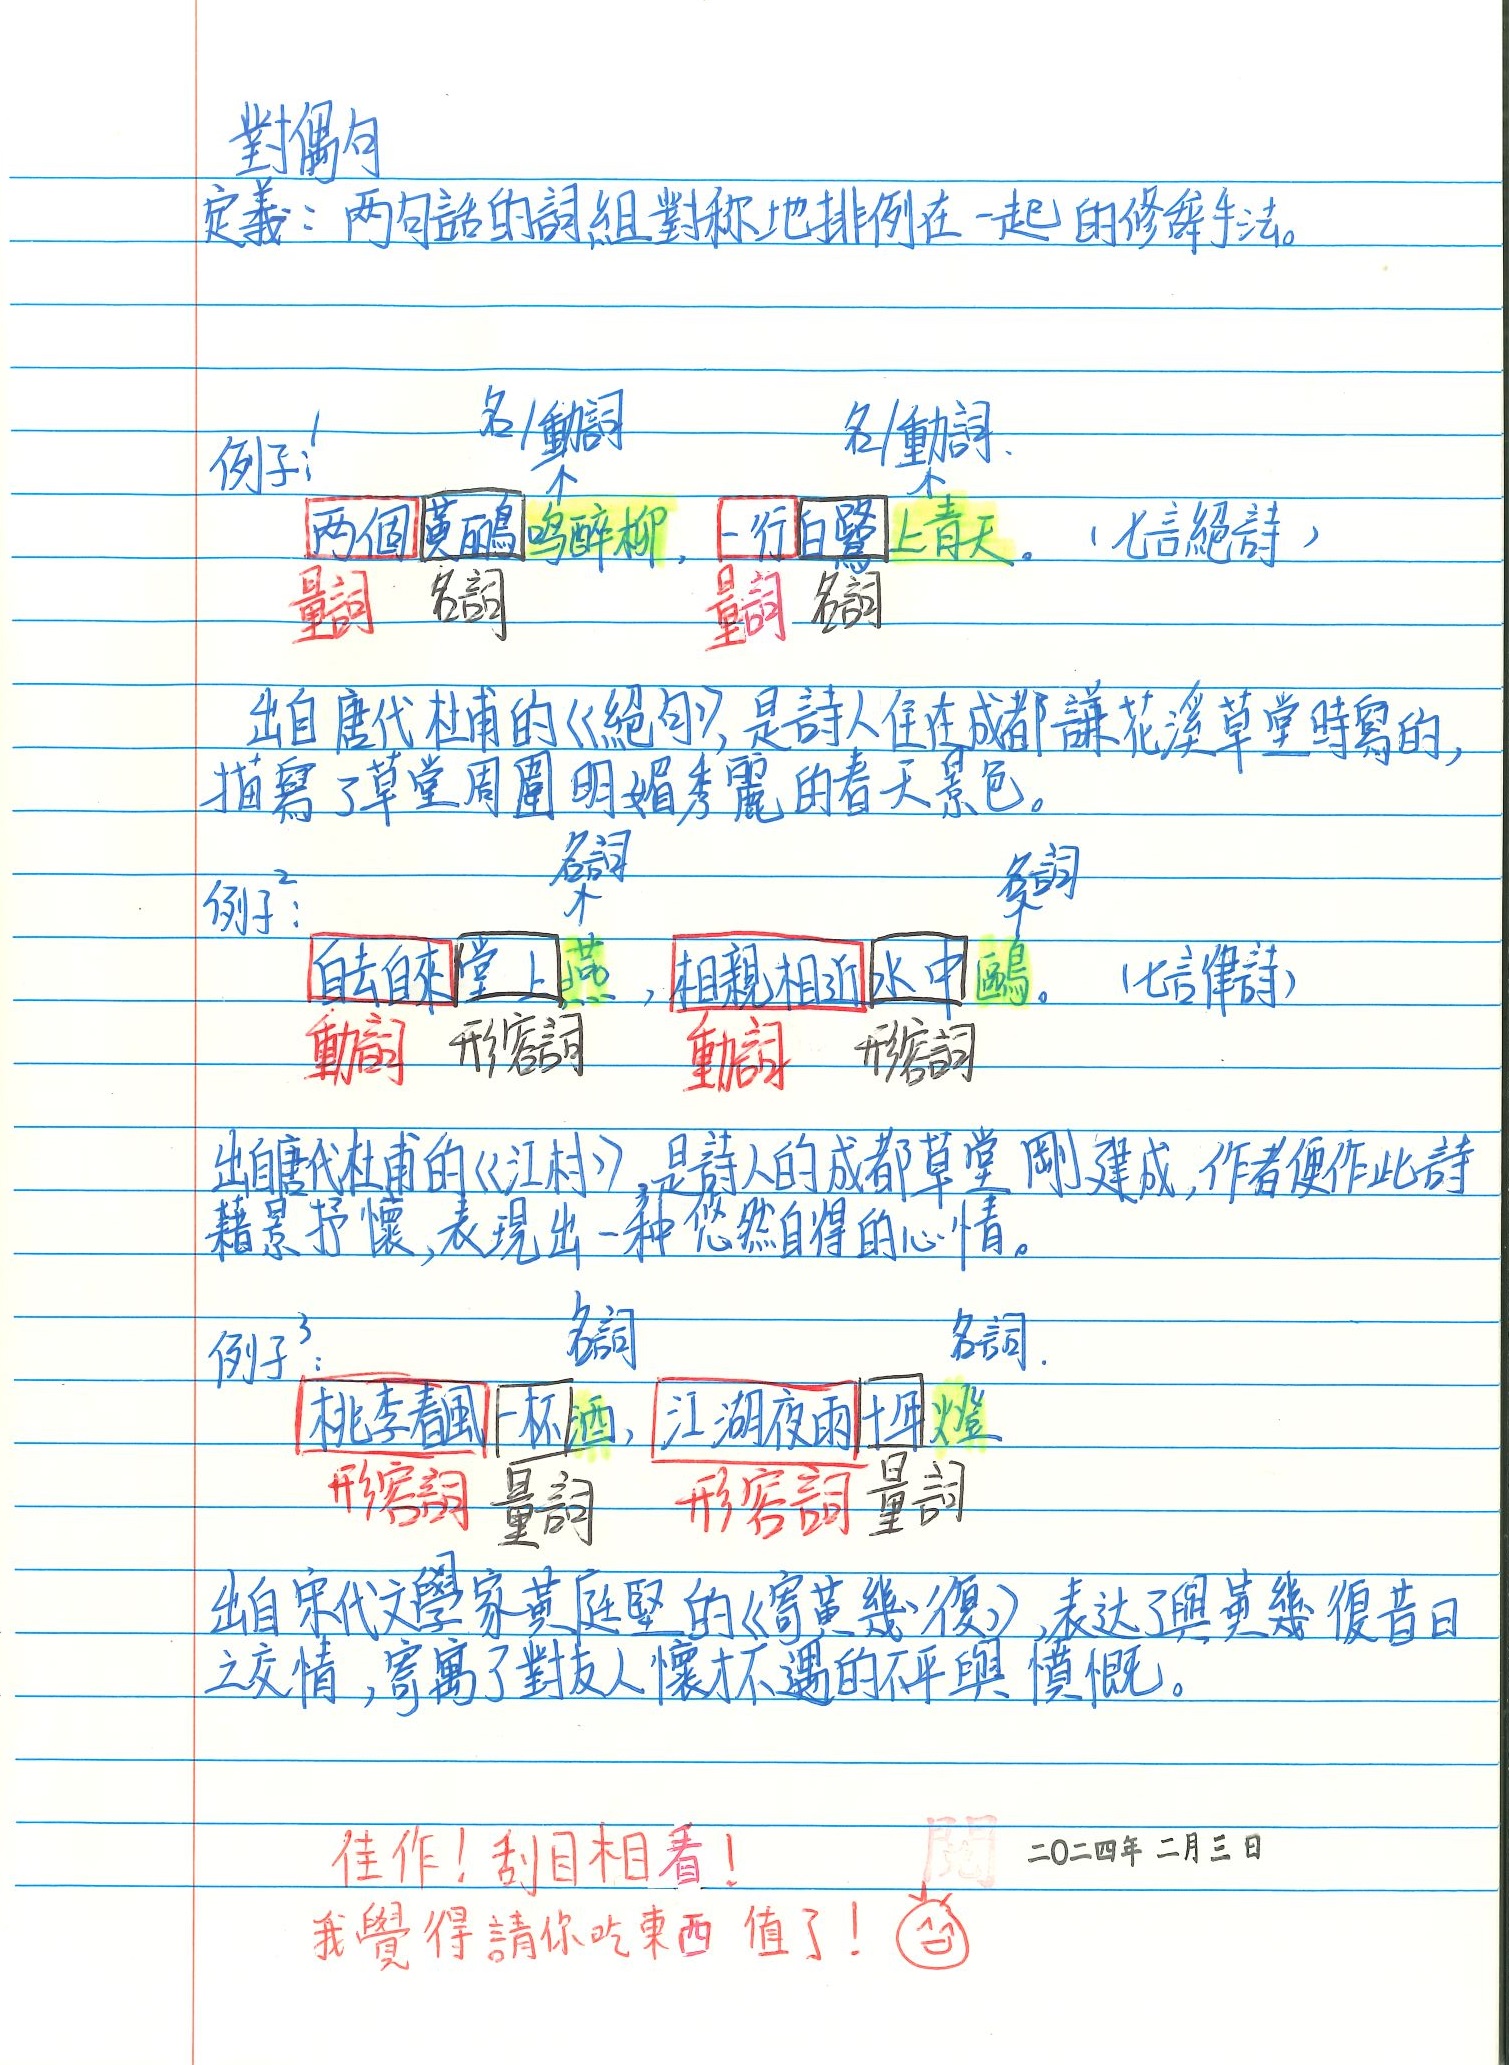 對偶句
定義：两句話的詞組對称地排例在一起的修辭手法。
例子1：
名/動詞 名/動詞.
两個黃鸝鳴醉柳，一行白鷺上青天。（七言絕詩）
量詞 名詞 量詞 名詞
出自唐代杜甫的《絕句》，是詩人住在成都謙花溪草堂時寫的，
描寫了草堂周圍明媚秀麗的春天景色。
名詞 名詞
例子2：
自去自來堂上燕，相親相近水中鷗。（七言律詩）
動詞 形容詞 動詞 形容詞
出自唐代杜甫的《江村》，是詩人的成都草堂剛建成，作者便作此詩
藉景抒懷，表現出一种悠然自得的心情。
名詞 名詞.
例子3：
桃李春風一杯酒，江湖夜雨十年燈
形容詞 量詞 形容詞 量詞
出自宋代文學家黃庭堅的《寄黃幾復》，表达了與黃幾復昔日
之交情，寄寓了對友人懷才不遇的不平與憤慨。
佳作！刮目相看！ 閱 二〇二四年 二月三日
我覺得請你吃東西值了！